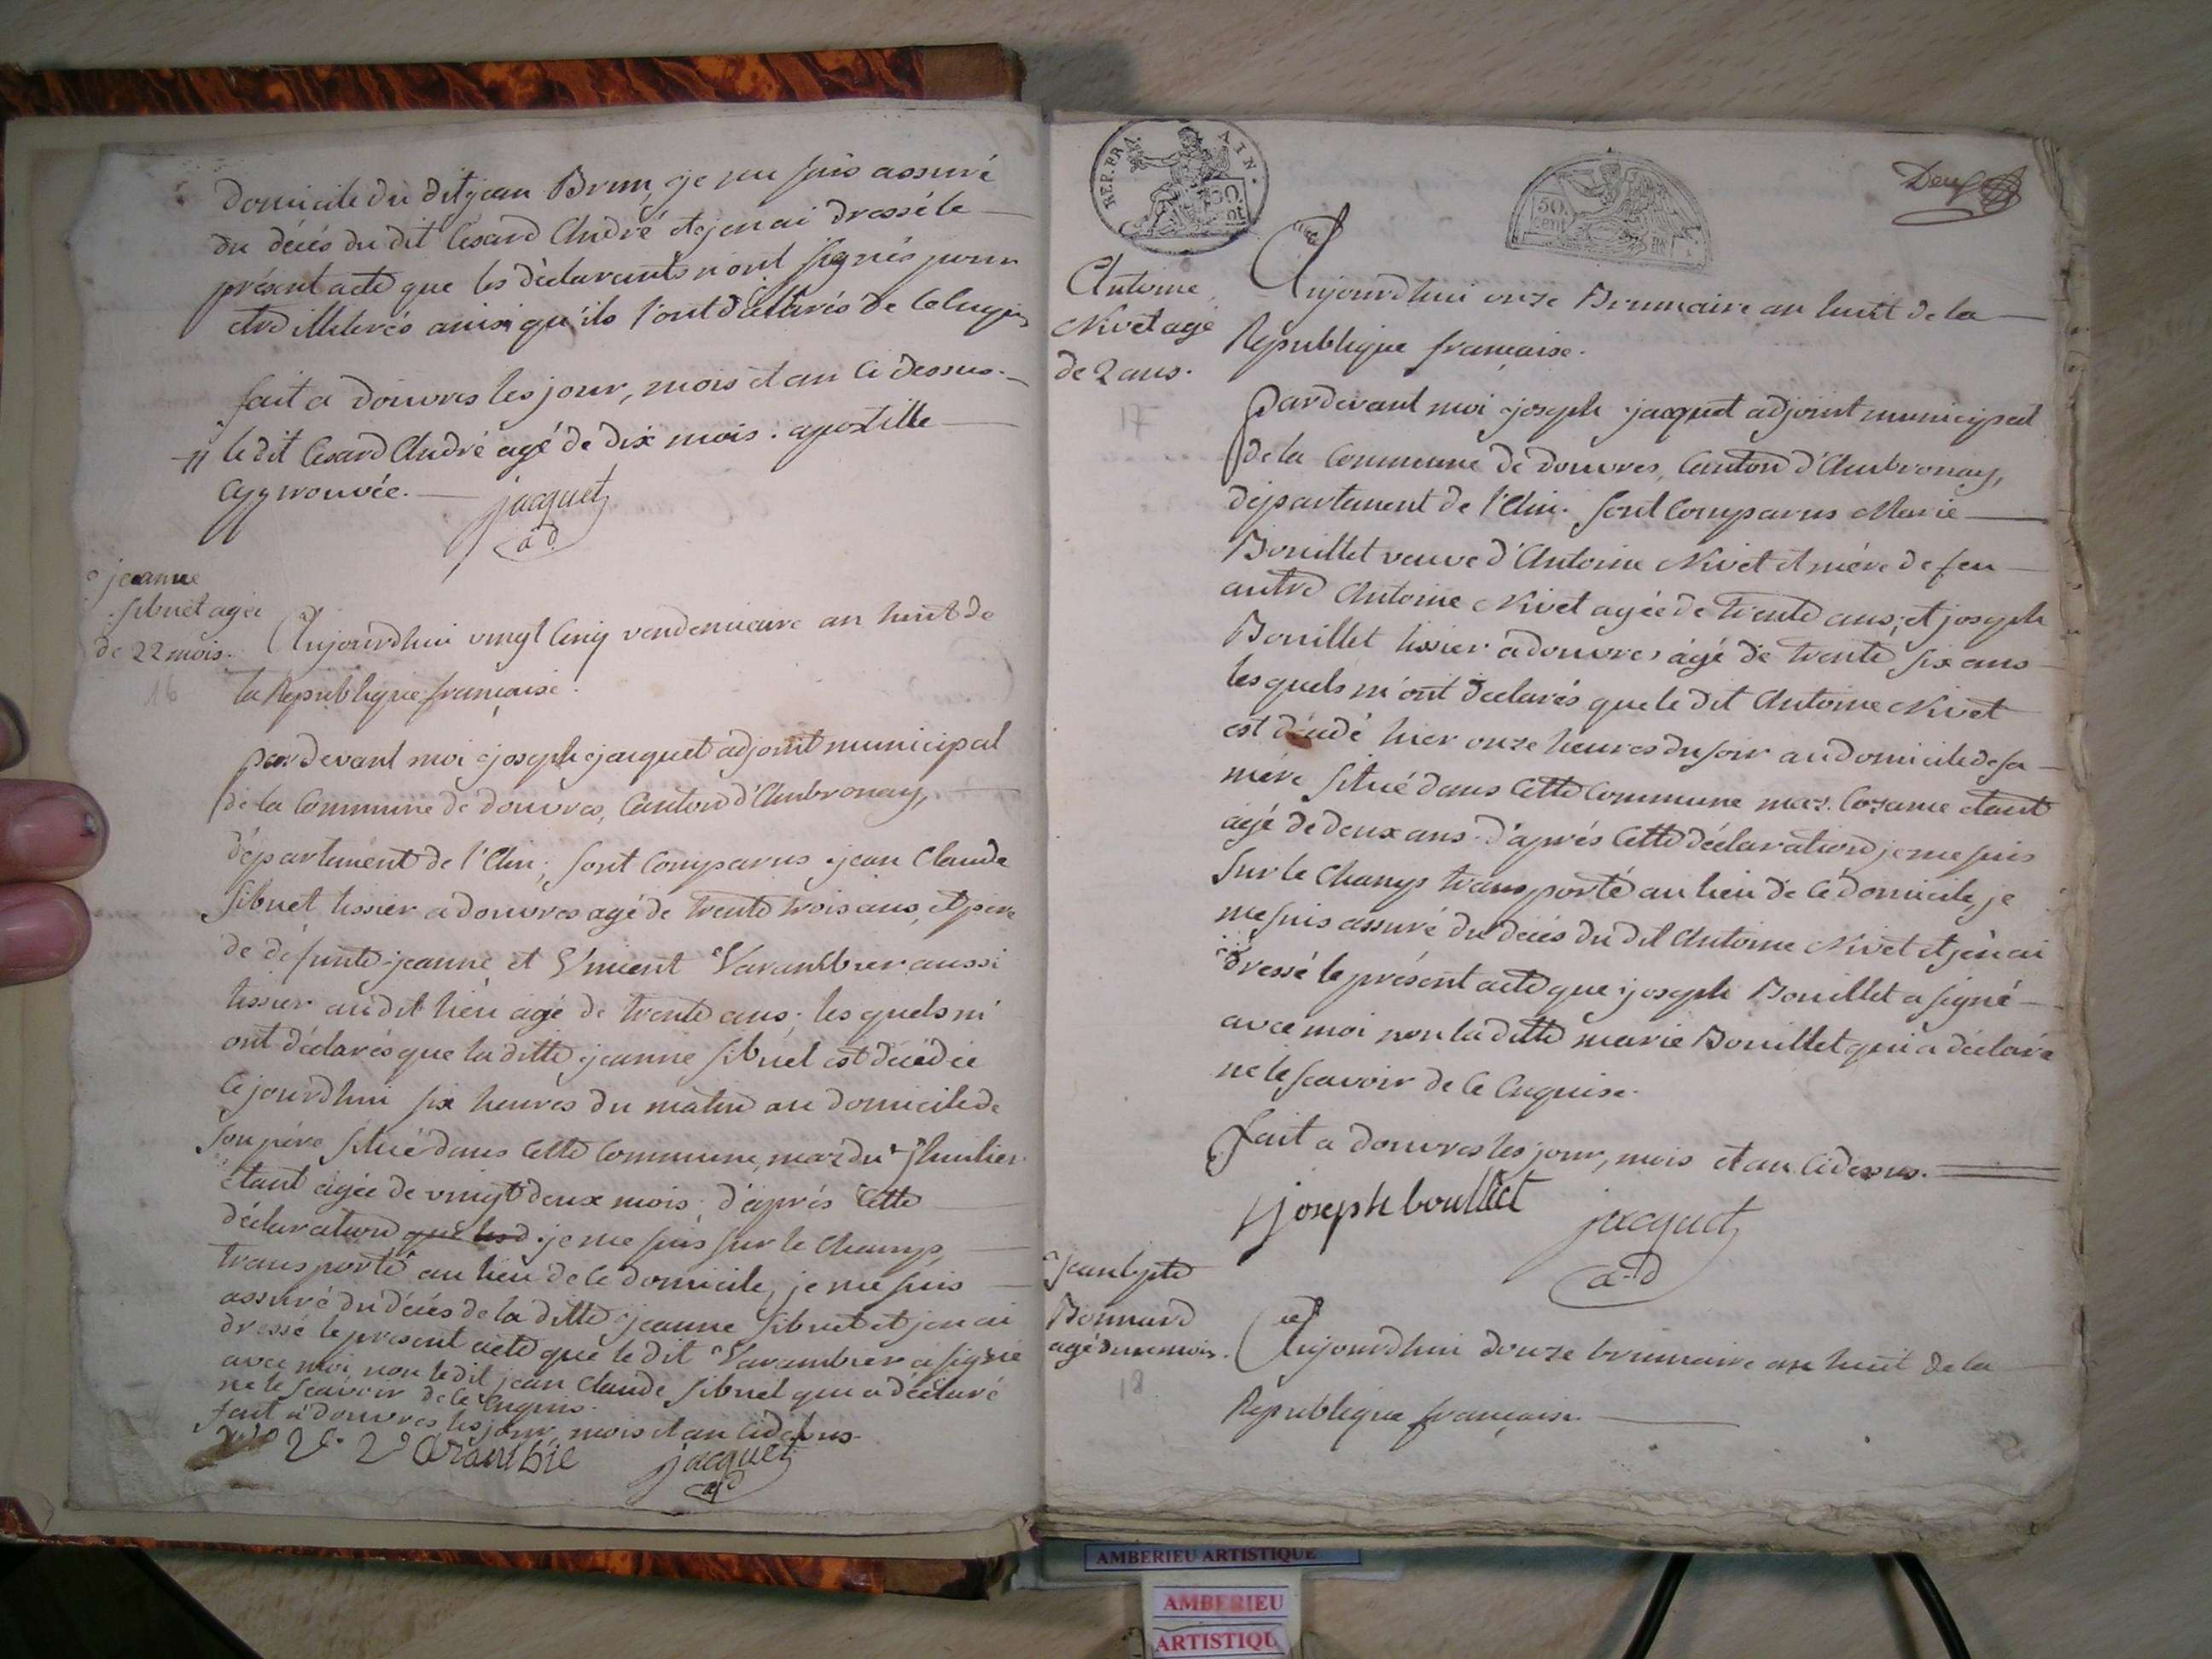 Domicile du dit jean Brun, je me suis assuré
du décés du dit Cesard André et j'en ai dressé le
présent acte que les déclarants n'ont signés pour
etre illiterés ainsi qu'ils l'ont déclarés de ce enquis
fait a douvres les jour, mois et an ci dessus.
le dit Cesard André agé de dix mois. apostille
approuvée.
jacquet
ad
jeanne
sibuet agée
de 22 mois.
16
Aujourdhui vingt cinq vendemiaire an huit de
la Republique française.
pardevant moi joseph jacquet adjoint municipal
de la Commune de douvres, Canton d'Ambronay,
département de l'Ain, sont Comparus jean Claude
sibuet tissier a douvres agé de trente trois ans, et pere
de défunte jeanne et Vincent Varambier aussi
tissier au dit lieu agé de trente ans. les quels m'
ont déclarés que la ditte jeanne sibuet est décédée
Ce jourdhui six heures du matin au domicile de
son pére situé dans Cette Commune, maz du
étant agée de vingt deux mois. d'aprés Cette
déclaration que led je me suis sur le champ
transporté au lieu de ce domicile, je me suis
assuré du décés de la ditte jeanne sibuet et j'en ai
dressé le present acte que le dit Varambier a signé
avec moi non le dit jean Claude sibuet qui a déclaré
ne le scavoir de ce enquis.
fait a douvres les jour, mois et an cidessus.
jacquet
ad
REP. FRA. AIN.
50
ct
50
cent
Deux
Antoine
Nivet agé
de 2 ans.
17
Aujourdhui onze Brumaire an huit de la
Republique française.
Pardevant moi joseph jacquet adjoint municipal
de la Commune de douvres, Canton d'Ambronay,
département de l'Ain. sont Comparus Marie
Bouillet veuve d'Antoine Nivet et mére de feu
autre Antoine Nivet agée de trente ans, et joseph
Bouillet tissier a douvres agé de trente six ans
les quels m'ont déclarés que le dit Antoine Nivet
est décédé hier onze heures du soir au domicile de sa
mére situé dans Cette Commune maz. Cozance etant
agé de deux ans. d'aprés Cette déclaration je me suis
sur le champ transporté au lieu de ce domicile, je
me suis assuré du décés du dit Antoine Nivet et j'en ai
dressé le présent acte que joseph Bouillet a signé
avec moi non la ditte marie Bouillet qui a déclaré
ne le scavoir de ce enquise.
fait a douvres les jour, mois et an cidessus.
joseph bouillet
jacquet
ad
jean bpte
Bonnard
agé d'un mois.
18
Aujourdhui douze brumaire an huit de la
Republique française.
AMBERIEU ARTISTIQUE
AMBERIEU
ARTISTIQU